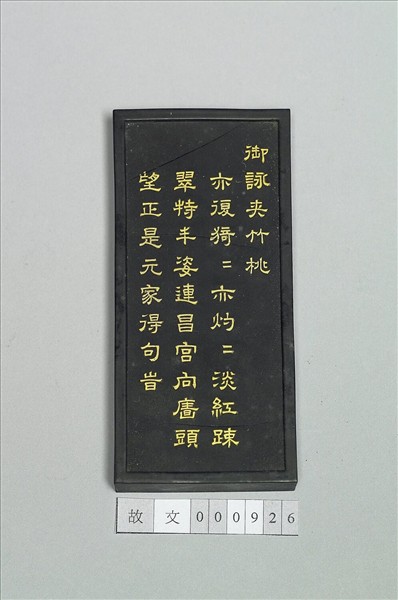 御詠夾竹桃
亦復猗〻亦灼〻淡紅疎
翠特丰姿連昌宮向牆頭
望正是元家得句旹
故文000926